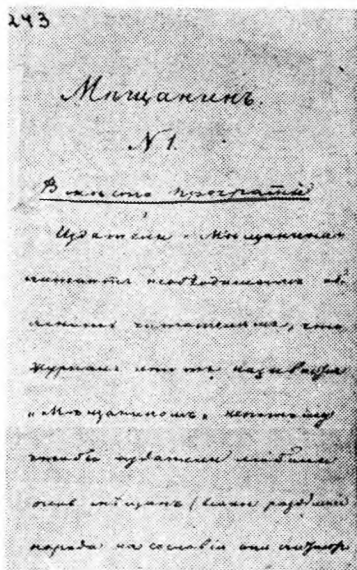 243
Мѣщанинъ.
N 1.
Вмѣсто программы
Издатели "Мѣщанина"
считаютъ необходимымъ объ-
яснить читателямъ, что
журналъ этотъ названъ
"Мѣщаниномъ" не потому
чтобы издатели любили
очень мѣщанъ (
народа на сословія они